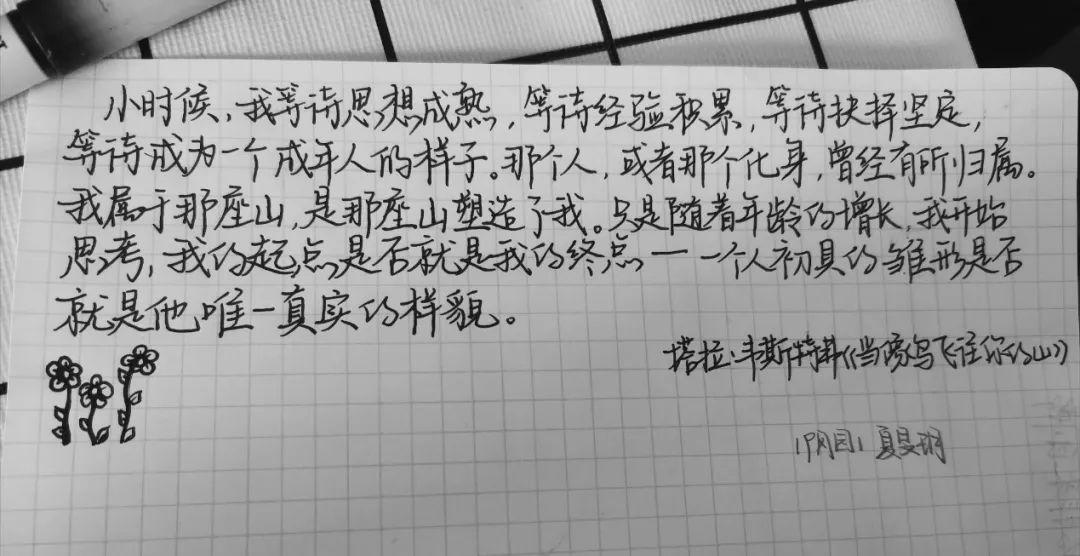 小时候，我等待思想成熟，等待经验积累，等待抉择坚定，
等待成为一个成年人的样子。那个人，或者那个化身，曾经有所归属。
我属于那座山，是那座山塑造了我。只是随着年龄的增长，我开始
思考，我的起点是否就是我的终点一一个人初具的雏形是否
就是他唯一真实的样貌。
塔拉·韦斯特弗《当像鸟飞往你的山》